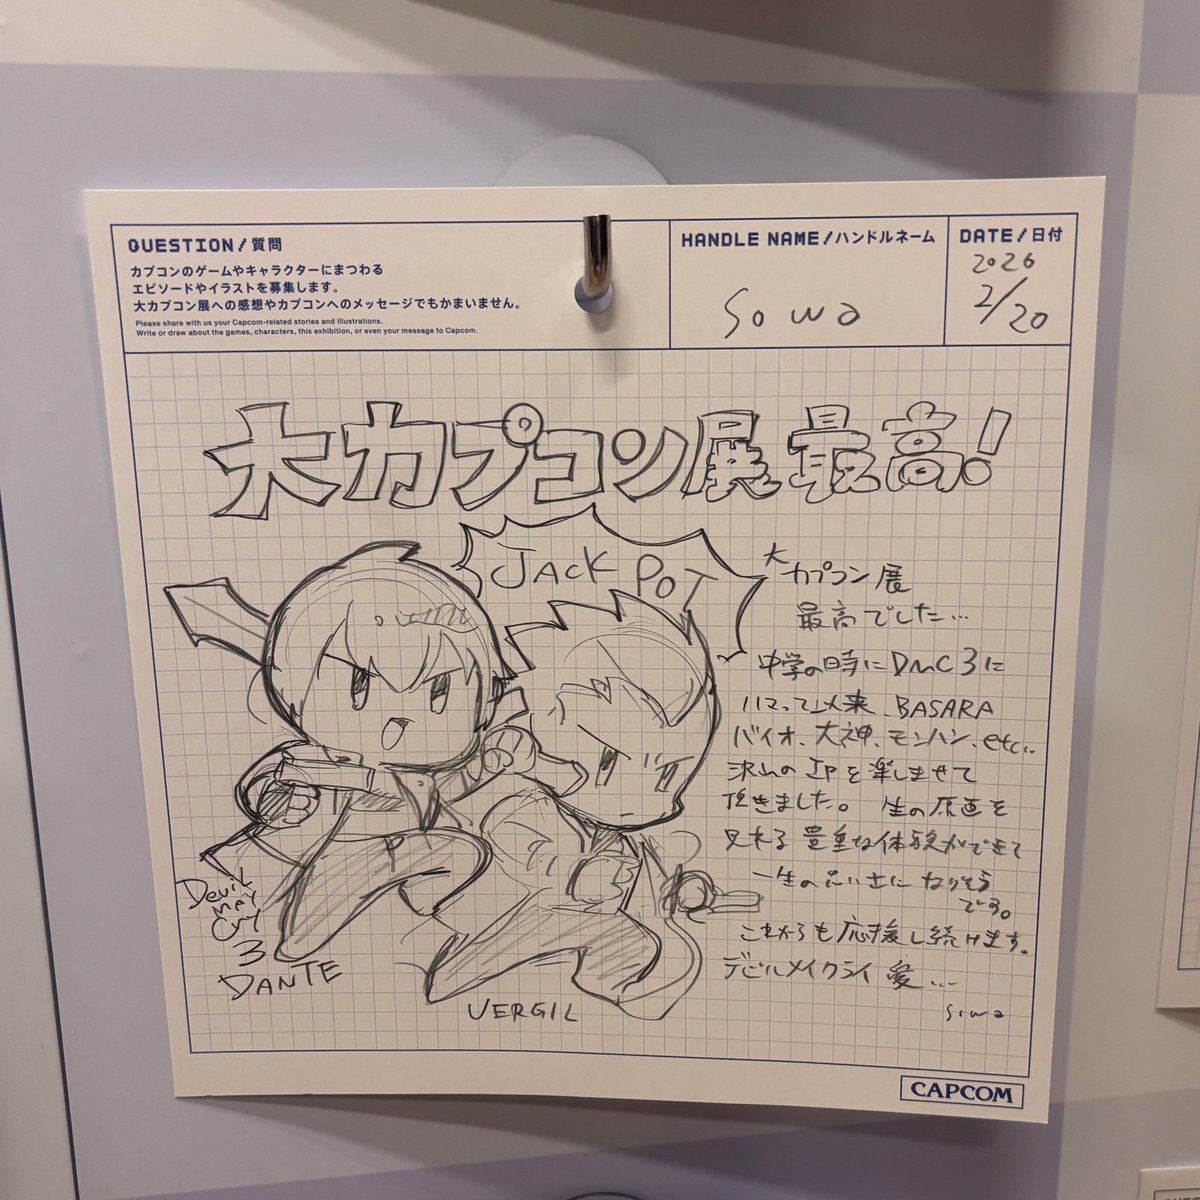 QUESTION/質問
カプコンのゲームやキャラクターにまつわる
エピソードやイラストを募集します。
大カプコン展への感想やカプコンへのメッセージでもかまいません。
Please share with us your Capcom-related stories and illustrations.
Write or draw about the games, characters, this exhibition, or even your message to Capcom.
HANDLE NAME/ハンドルネーム
sowa
DATE/日付
2026
2/20
大カプコン展最高!
JACK POT
大カプコン展
最高でした…
中学の時にDMC3に
ハマって以来、BASARA
バイオ、大神、モンハン、etc…
沢山のIPを楽しませて
頂きました。生の原画を
見れる貴重な体験ができて
一生の思い出になりそう
です。
これからも応援し続けます。
デビルメイクライ愛…
sowa
Devil
May
Cry
3
DANTE
VERGIL
CAPCOM